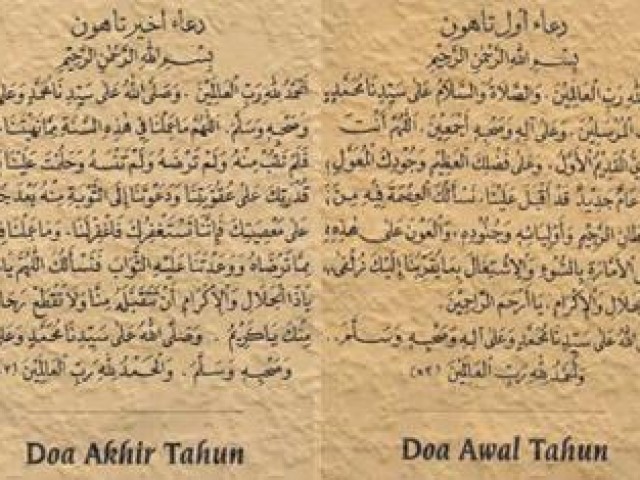 دعاء أخير تاهون
بِسْمِ اللهِ الرَّحْمٰنِ الرَّحِيْمِ
اَلْحَمْدُ لِلهِ رَبِّ الْعَالَمِيْنَ . وَصَلَّى اللهُ عَلَى سَيِّدِنَا مُحَمَّدٍ وَعَلَى
وَصَحْبِهِ وَسَلَّمَ . اَللّٰهُمَّ مَا عَمِلْنَا فِي هٰذِهِ السَّنَةِ مِمَّا نَهَيْتَنَا
فَلَمْ نَتُبْ مِنْهُ وَلَمْ تَرْضَهُ وَلَمْ تَنْسَهُ وَحَلُمْتَ عَلَيْنَا
قُدْرَتِكَ عَلَى عُقُوْبَتِنَا وَدَعَوْتَنَا إِلَى التَّوْبَةِ مِنْهُ بَعْدَ
عَلَى مَعْصِيَتِكَ فَإِنَّا نَسْتَغْفِرُكَ فَاغْفِرْلَنَا . وَمَا عَمِلْنَا
مِمَّا تَرْضَاهُ وَوَعَدْتَنَا عَلَيْهِ الثَّوَابَ فَنَسْأَلُكَ اللّٰهُمَّ يَا
يَاذَا الْجَلَالِ وَالْإِكْرَامِ أَنْ تَتَقَبَّلَهُ مِنَّا وَلَا تَقْطَعْ
مِنْكَ يَا كَرِيْمُ . وَصَلَّى اللهُ عَلَى سَيِّدِنَا مُحَمَّدٍ وَعَلَى
وَصَحْبِهِ وَسَلَّمَ . وَالْحَمْدُ لِلهِ رَبِّ الْعَالَمِيْنَ
Doa Akhir Tahun
دعاء أول تاهون
بِسْمِ اللهِ الرَّحْمٰنِ الرَّحِيْمِ
لِلهِ رَبِّ الْعَالَمِيْنَ . وَالصَّلَاةُ وَالسَّلَامُ عَلَى سَيِّدِنَا مُحَمَّدٍ
الْمُرْسَلِيْنَ . وَعَلَى آلِهِ وَصَحْبِهِ أَجْمَعِيْنَ . اَللّٰهُمَّ أَنْتَ
الْقَدِيْمُ الْأَوَّلُ . وَعَلَى فَضْلِكَ الْعَظِيْمِ وَجُوْدِكَ الْمُعَوَّلُ
عَامٌ جَدِيْدٌ قَدْ أَقْبَلَ عَلَيْنَا . نَسْأَلُكَ الْعِصْمَةَ فِيْهِ مِنَ
الرَّجِيْمِ وَأَوْلِيَائِهِ وَجُنُوْدِهِ . وَالْعَوْنَ عَلَى هٰذِهِ
الْأَمَّارَةِ بِالسُّوْءِ وَالْاِشْتِغَالَ بِمَا يُقَرِّبُنَا إِلَيْكَ زُلْفَى
وَالْإِكْرَامِ . يَا أَرْحَمَ الرَّاحِمِيْنَ .
اللهُ عَلَى سَيِّدِنَا مُحَمَّدٍ وَعَلَى آلِهِ وَصَحْبِهِ وَسَلَّمَ .
وَالْحَمْدُ لِلهِ رَبِّ الْعَالَمِيْنَ
Doa Awal Tahun